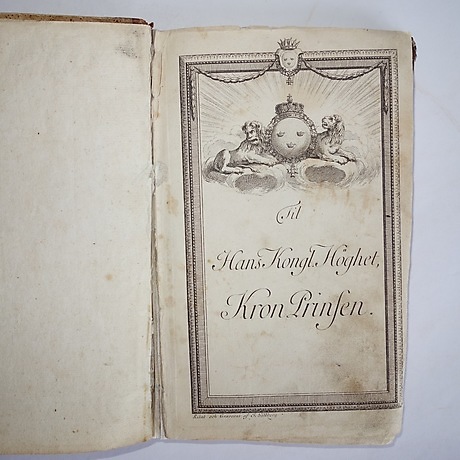 Til
Hans Kongl. Höghet,
Kron Prinſen.
Ritat och Graverat af